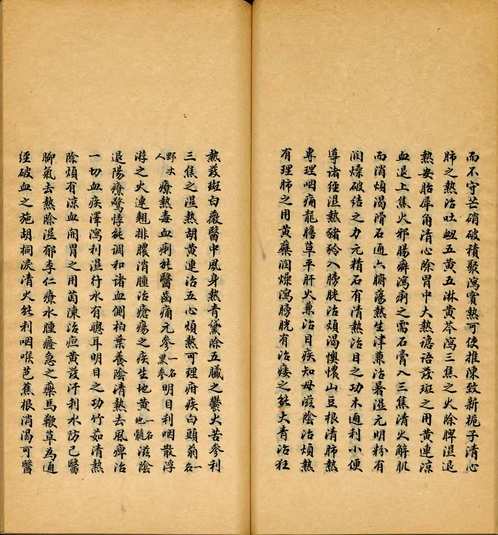 而不守芒硝破積聚瀉實熱可使推陳致新栀子清心
肺之熱治吐衄五黃五淋黃芩瀉三焦之火除脾濕退
熱安胎犀角清心除胃中大熱譫語發斑之用黃連涼
血退上焦火邪腸癖瀉痢之需石膏入三焦清火解肌
而消煩渴滑石通六腑蕩熱生津兼治暑濕元明粉有
潤燥破結之力元精石有清熱治目之功木通利小便
導諸經濕熱豬苓入膀胱治煩渴懊憹山豆根清肺熱
專理咽痛龍膽草平肝火兼治目疾知母滋陰治煩熱
有理肺之用黃蘗潤燥瀉膀胱有治痿之能大青治狂
熱發斑白薇醫中風身熱青黛除五臟之鬱火苦參利
三焦之濕熱胡黃連治五心煩熱可理疳疾白頭翁一名
野丈人療熱毒血痢能醫齒痛元參一名黑參明目利咽散浮
游之火連翹排膿消腫治瘡瘍之疾生地黃一名地髓滋陰
退陽療驚悸能調和諸血側柏葉養陰清熱去風痺治
一切血疾澤瀉利濕行水有聰耳明目之功竹茹清熱
除煩有涼血開胃之用茵陳治疸黃發汗利水防己醫
腳氣去熱除濕郁李仁療水腫癃急之藥馬鞭草為通
經破血之施胡桐淚清火能利咽喉芭蕉根消渴可醫